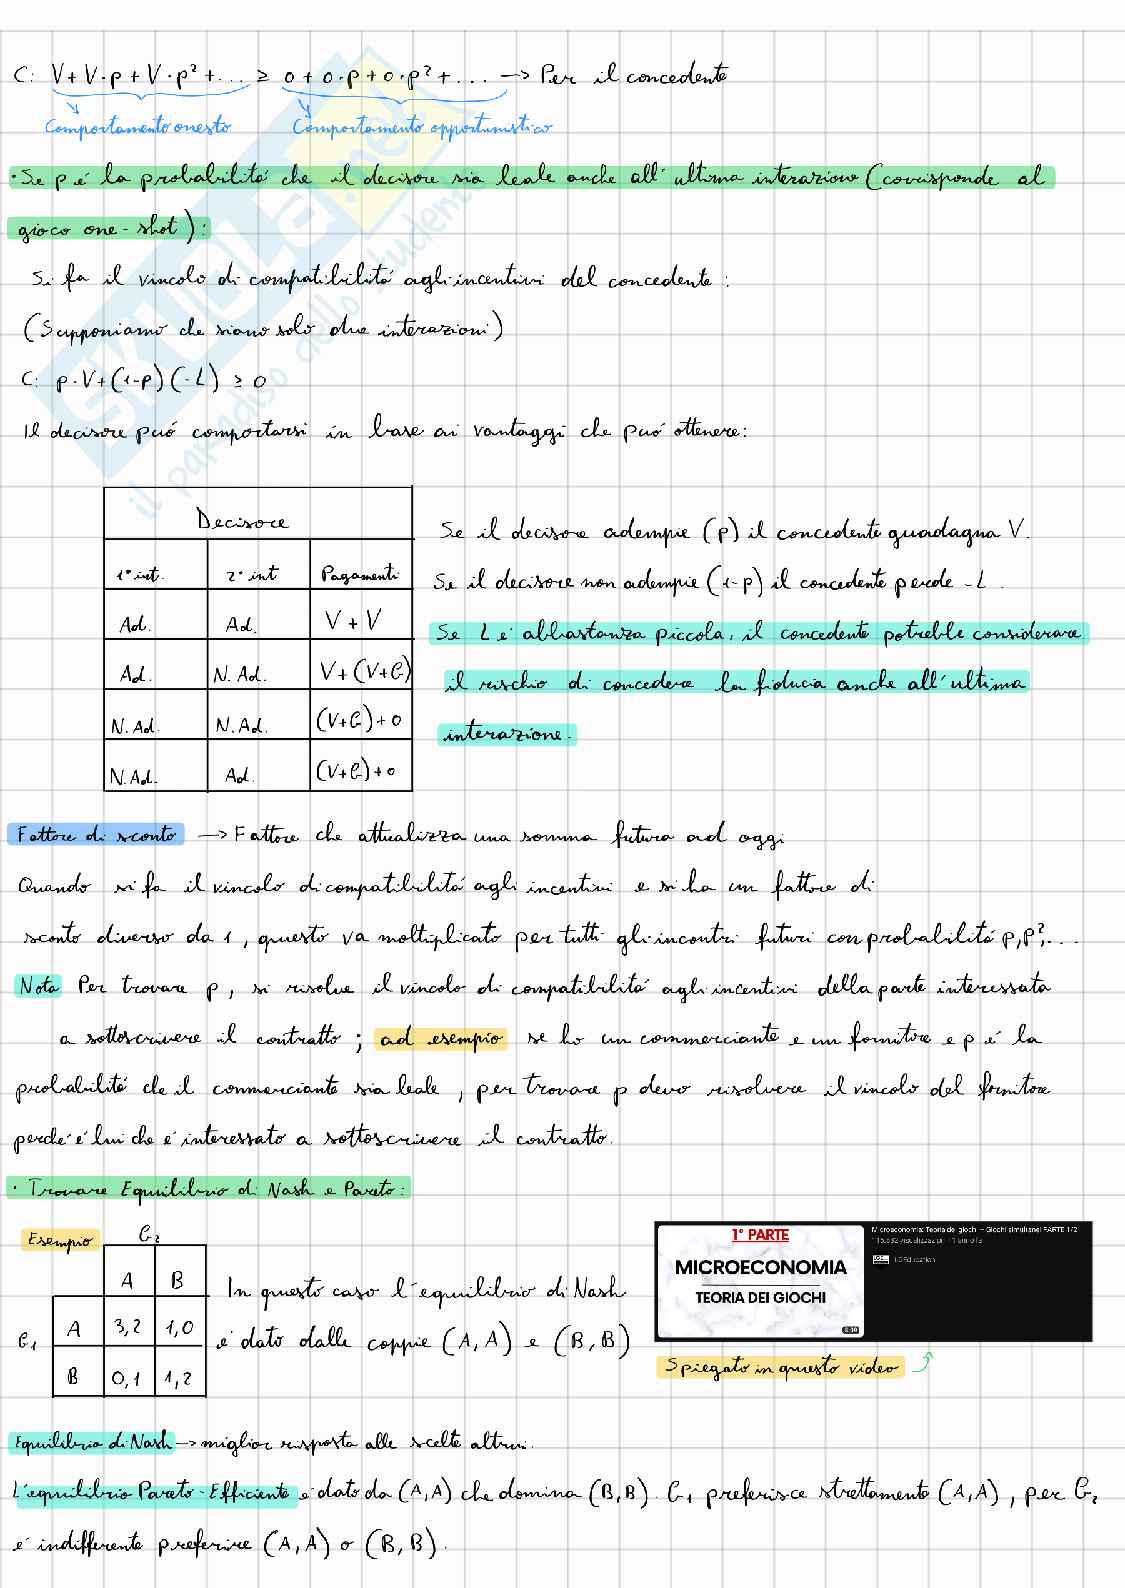 C: V+V·p+V·p²+... ≥ 0+0·p+0·p²+... → Per il concedente
Comportamento onesto Comportamento opportunistico
·Se p é la probabilitá che il decisore sia leale anche all'ultima interazione (corrisponde al
gioco one-shot):
Si fa il vincolo di compatibilitá agli incentivi del concedente:
(Supponiamo che siano solo due interazioni)
C: p·V+(1-p)(-L) ≥ 0
Il decisore puó comportarsi in base ai vantaggi che puó ottenere:
Decisore
1° int. 2° int Pagamenti
Ad. Ad. V+V
Ad. N.Ad. V+(V+G)
N.Ad. N.Ad. (V+G)+0
N.Ad. Ad. (V+G)+0
Se il decisore adempie (p) il concedente guadagna V.
Se il decisore non adempie (1-p) il concedente perde -L.
Se L é abbastanza piccola, il concedente potrebbe considerare
il rischio di concedere la fiducia anche all'ultima
interazione.
Fattore di sconto → Fattore che attualizza una somma futura ad oggi
Quando si fa il vincolo di compatibilitá agli incentivi e si ha un fattore di
sconto diverso da 1, questo va moltiplicato per tutti gli incontri futuri con probabilitá p,p²,...
Nota Per trovare p, si risolve il vincolo di compatibilitá agli incentivi della parte interessata
a sottoscrivere il contratto; ad esempio se ho un commerciante e un fornitore e p é la
probabilitá che il commerciante sia leale, per trovare p devo risolvere il vincolo del fornitore
perché é lui che é interessato a sottoscrivere il contratto.
· Trovare Equilibrio di Nash e Pareto:
Esempio G₂
A B
G₁ A 3,2 1,0
B 0,1 1,2
In questo caso l'equilibrio di Nash
é dato dalle coppie (A,A) e (B,B)
1° PARTE
MICROECONOMIA
TEORIA DEI GIOCHI
Microeconomia: Teoria dei giochi – Giochi simultanei PARTE 1/2
Education
Spiegato in questo video
Equilibrio di Nash → miglior risposta alle scelte altrui.
L'equilibrio Pareto-Efficiente é dato da (A,A) che domina (B,B). G₁ preferisce strettamente (A,A), per G₂
é indifferente preferire (A,A) o (B,B).
SKUOLA.net
il paradiso dello studente